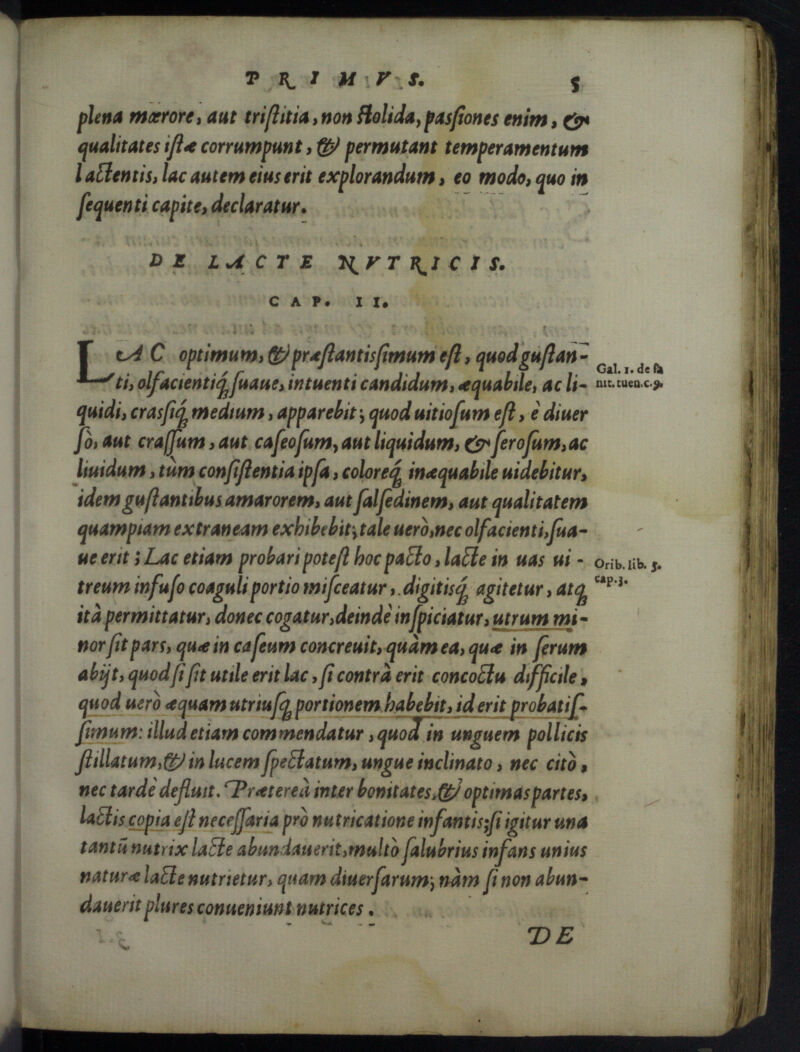 PRIMVS. 5
plena mœrore, aut triſtitia, non ſtolida, paſſiones enim, &
qualitates iſtæ corrumpunt, & permutant temperamentum
lactentis, lac autem eius erit explorandum, eo modo, quo in
ſequenti capite, declaratur.
DE LACTE NVTRICIS.
CAP. II.
LAC optimum, & præſtantisſimum eſt, quod guſtan-
ti, olfacientiq́; ſuaue, intuenti candidum, æquabile, ac li-
Gal. 1. de ſa
nit. tuen. c. 9.
quidi, crasſiq́; medium, apparebit; quod uitioſum eſt, è diuer
ſo, aut craſſum, aut caſeoſum, aut liquidum, & ſeroſum, ac
liuidum, tùm conſiſtentia ipſa, coloreq́; inæquabile uidebitur,
idem guſtantibus amarorem, aut ſalſedinem, aut qualitatem
quampiam extraneam exhibebit; tale uerò, nec olfacienti, ſua-
ue erit; Lac etiam probari poteſt hoc pacto, lacte in uas ui-
Orib. lib. 5.
cap. 3.
treum infuſo coaguli portio miſceatur, digitisq́; agitetur, atq́;
ità permittatur, donec cogatur, deindè inſpiciatur, utrum mi-
nor ſit pars, quæ in caſeum concreuit, quàm ea, quæ in ſerum
abijt, quod ſi ſit utile erit lac, ſi contrà erit concoctu difficile,
quod uerò æquam utriuſq́; portionem habebit, id erit probatiſ-
ſimum: illud etiam commendatur, quod in unguem pollicis
ſtillatum, & in lucem ſpectatum, ungue inclinato, nec citò,
nec tardè defluit. Prætereà inter bonitates, & optimas partes,
lactis copia eſt neceſſaria prò nutricatione infantis; ſi igitur una
tantū nutrix lacte abundauerit, multò ſalubrius infans unius
naturæ lacte nutrietur, quam diuerſarum; nàm ſi non abun-
dauerit plures conueniunt nutrices.
DE